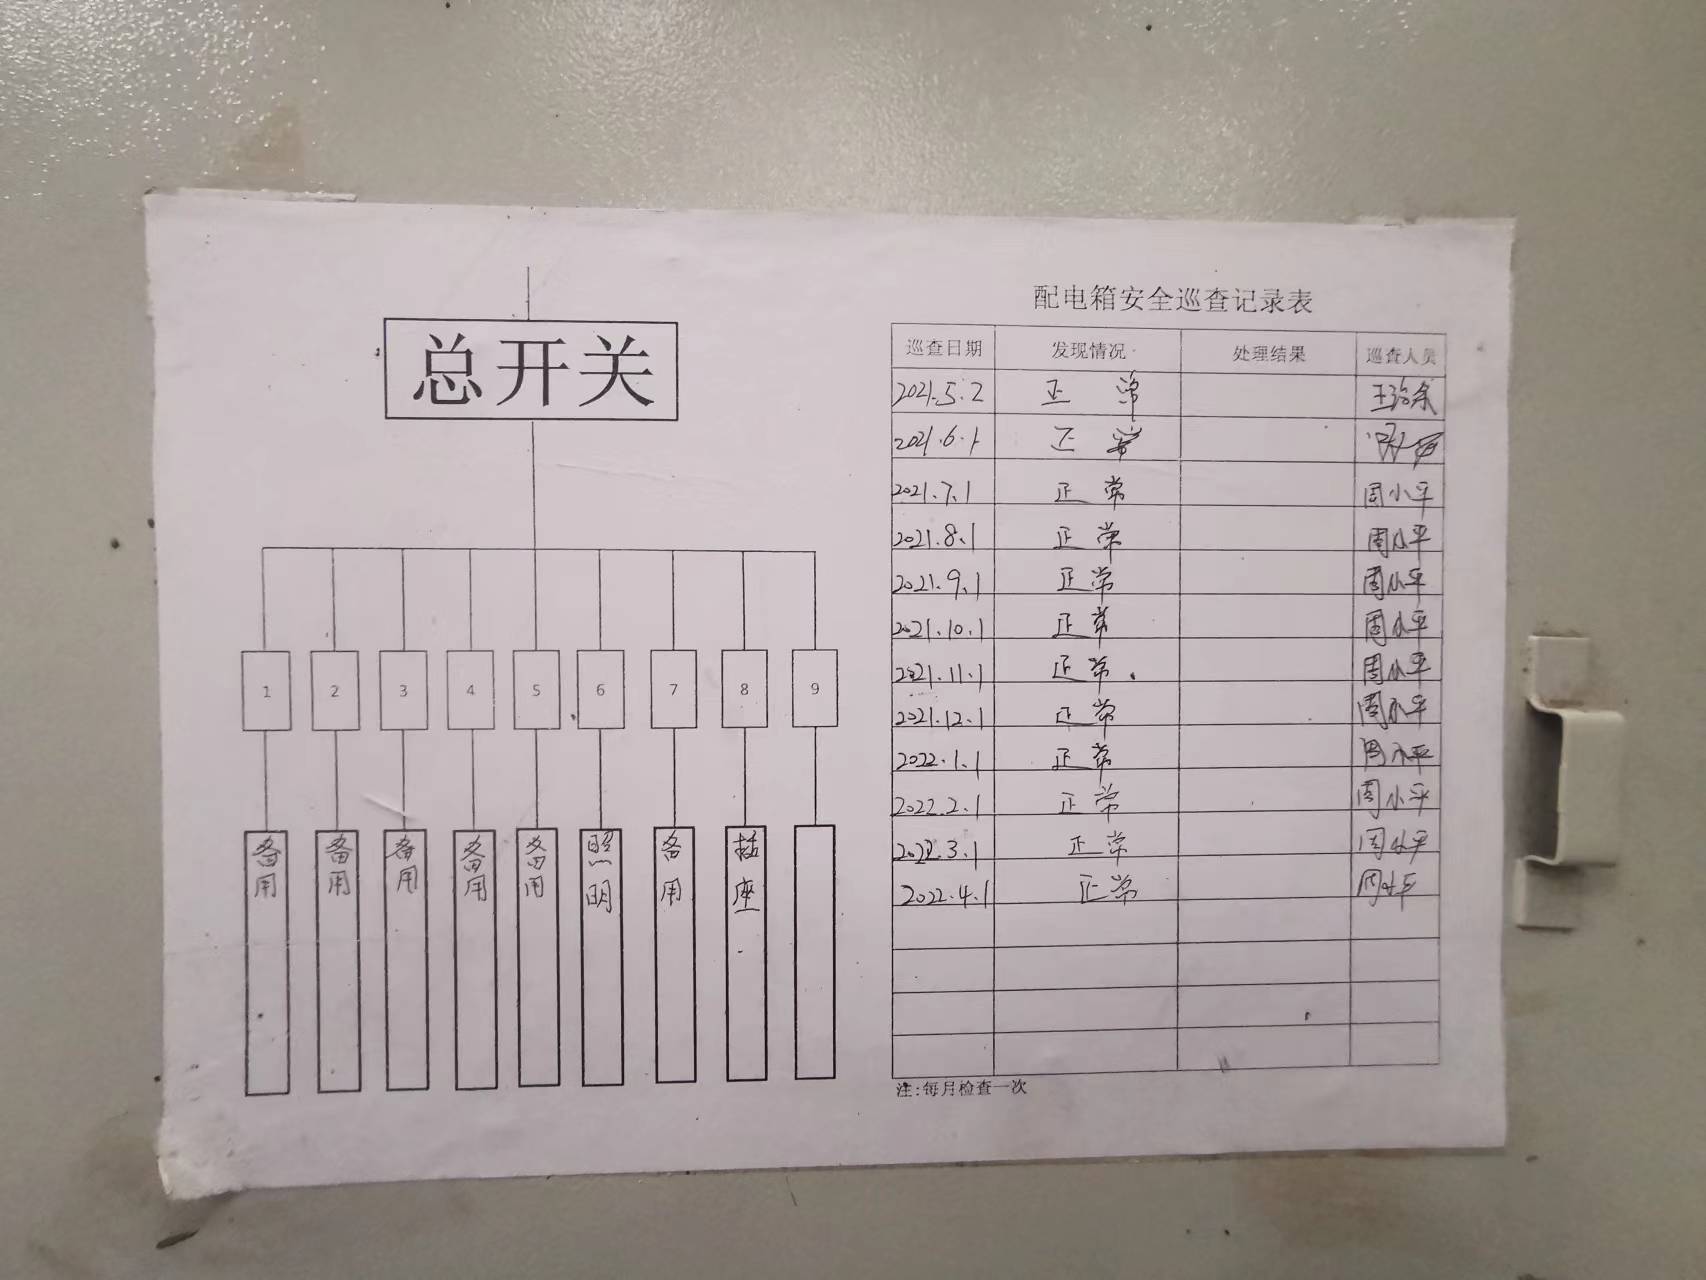 总开关
1 2 3 4 5 6 7 8 9
备用
备用
备用
备用
备用
照明
备用
插座
配电箱安全巡查记录表
巡查日期 发现情况 处理结果 巡查人员
2021.5.2 正常
2021.6.1 正常
2021.7.1 正常 周小平
2021.8.1 正常 周小平
2021.9.1 正常 周小平
2021.10.1 正常 周小平
2021.11.1 正常 周小平
2021.12.1 正常 周小平
2022.1.1 正常 周小平
2022.2.1 正常 周小平
2022.3.1 正常 周小平
2022.4.1 正常 周小平
注:每月检查一次